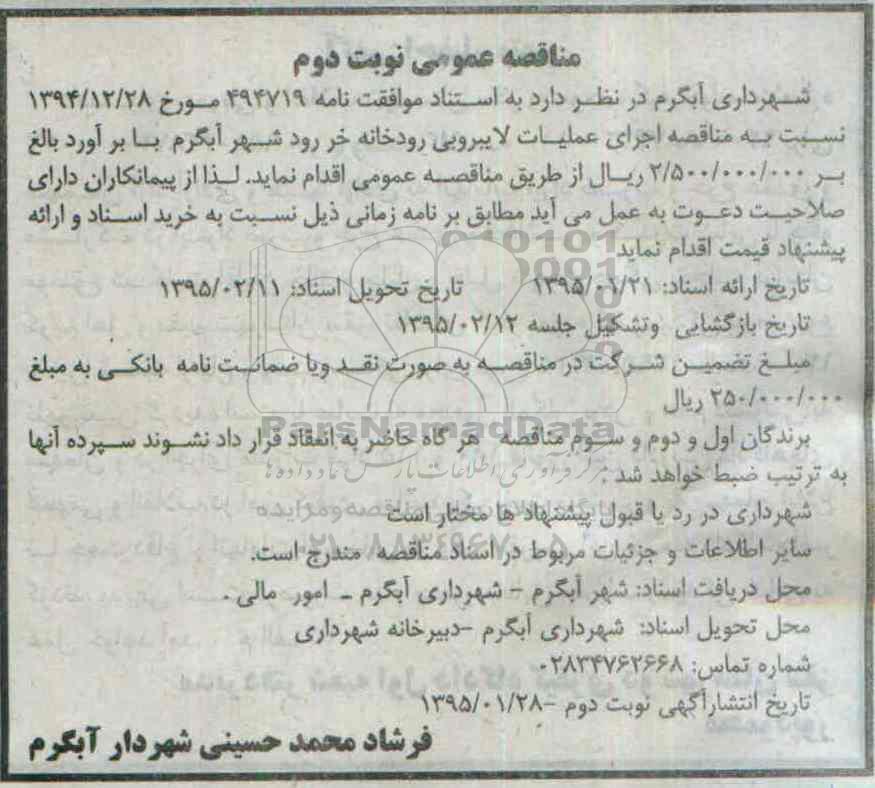 مناقصه عمومی نوبت دوم
شهرداری آبگرم در نظر دارد به استناد موافقت نامه ۴۹۴۷۱۹ مورخ ۱۳۹۴/۱۲/۲۸
نسبت به مناقصه اجرای عملیات لایبروبی رودخانه خر رود شهر آبگرم با بر آورد بالغ
بر ۲/۵۰۰/۰۰۰/۰۰۰ ریال از طریق مناقصه عمومی اقدام نماید. لذا از پیمانکاران دارای
صلاحیت دعوت به عمل می آید مطابق بر نامه زمانی ذیل نسبت به خرید اسناد و ارائه
پیشنهاد قیمت اقدام نماید
تاریخ ارائه اسناد: ۱۳۹۵/۰۱/۲۱ تاریخ تحویل اسناد: ۱۳۹۵/۰۲/۱۱
تاریخ بازگشایی وتشکیل جلسه ۱۳۹۵/۰۲/۱۲
مبلغ تضمین شرکت در مناقصه به صورت نقد ویا ضمانت نامه بانکی به مبلغ
۲۵۰/۰۰۰/۰۰۰ ریال
برندگان اول و دوم و سوم مناقصه هر گاه حاضر به انعقاد قرار داد نشوند سپرده آنها
به ترتیب ضبط خواهد شد .
شهرداری در رد یا قبول پیشنهاد ها مختار است
سایر اطلاعات و جزئیات مربوط در اسناد مناقصه مندرج است.
محل دریافت اسناد: شهر آبگرم - شهرداری آبگرم - امور مالی .
محل تحویل اسناد: شهرداری آبگرم -دبیرخانه شهرداری
شماره تماس: ۰۲۸۳۴۷۶۲۶۶۸
تاریخ انتشارآگهی نوبت دوم -۱۳۹۵/۰۱/۲۸
فرشاد محمد حسینی شهردار آبگرم
ParsNamadData